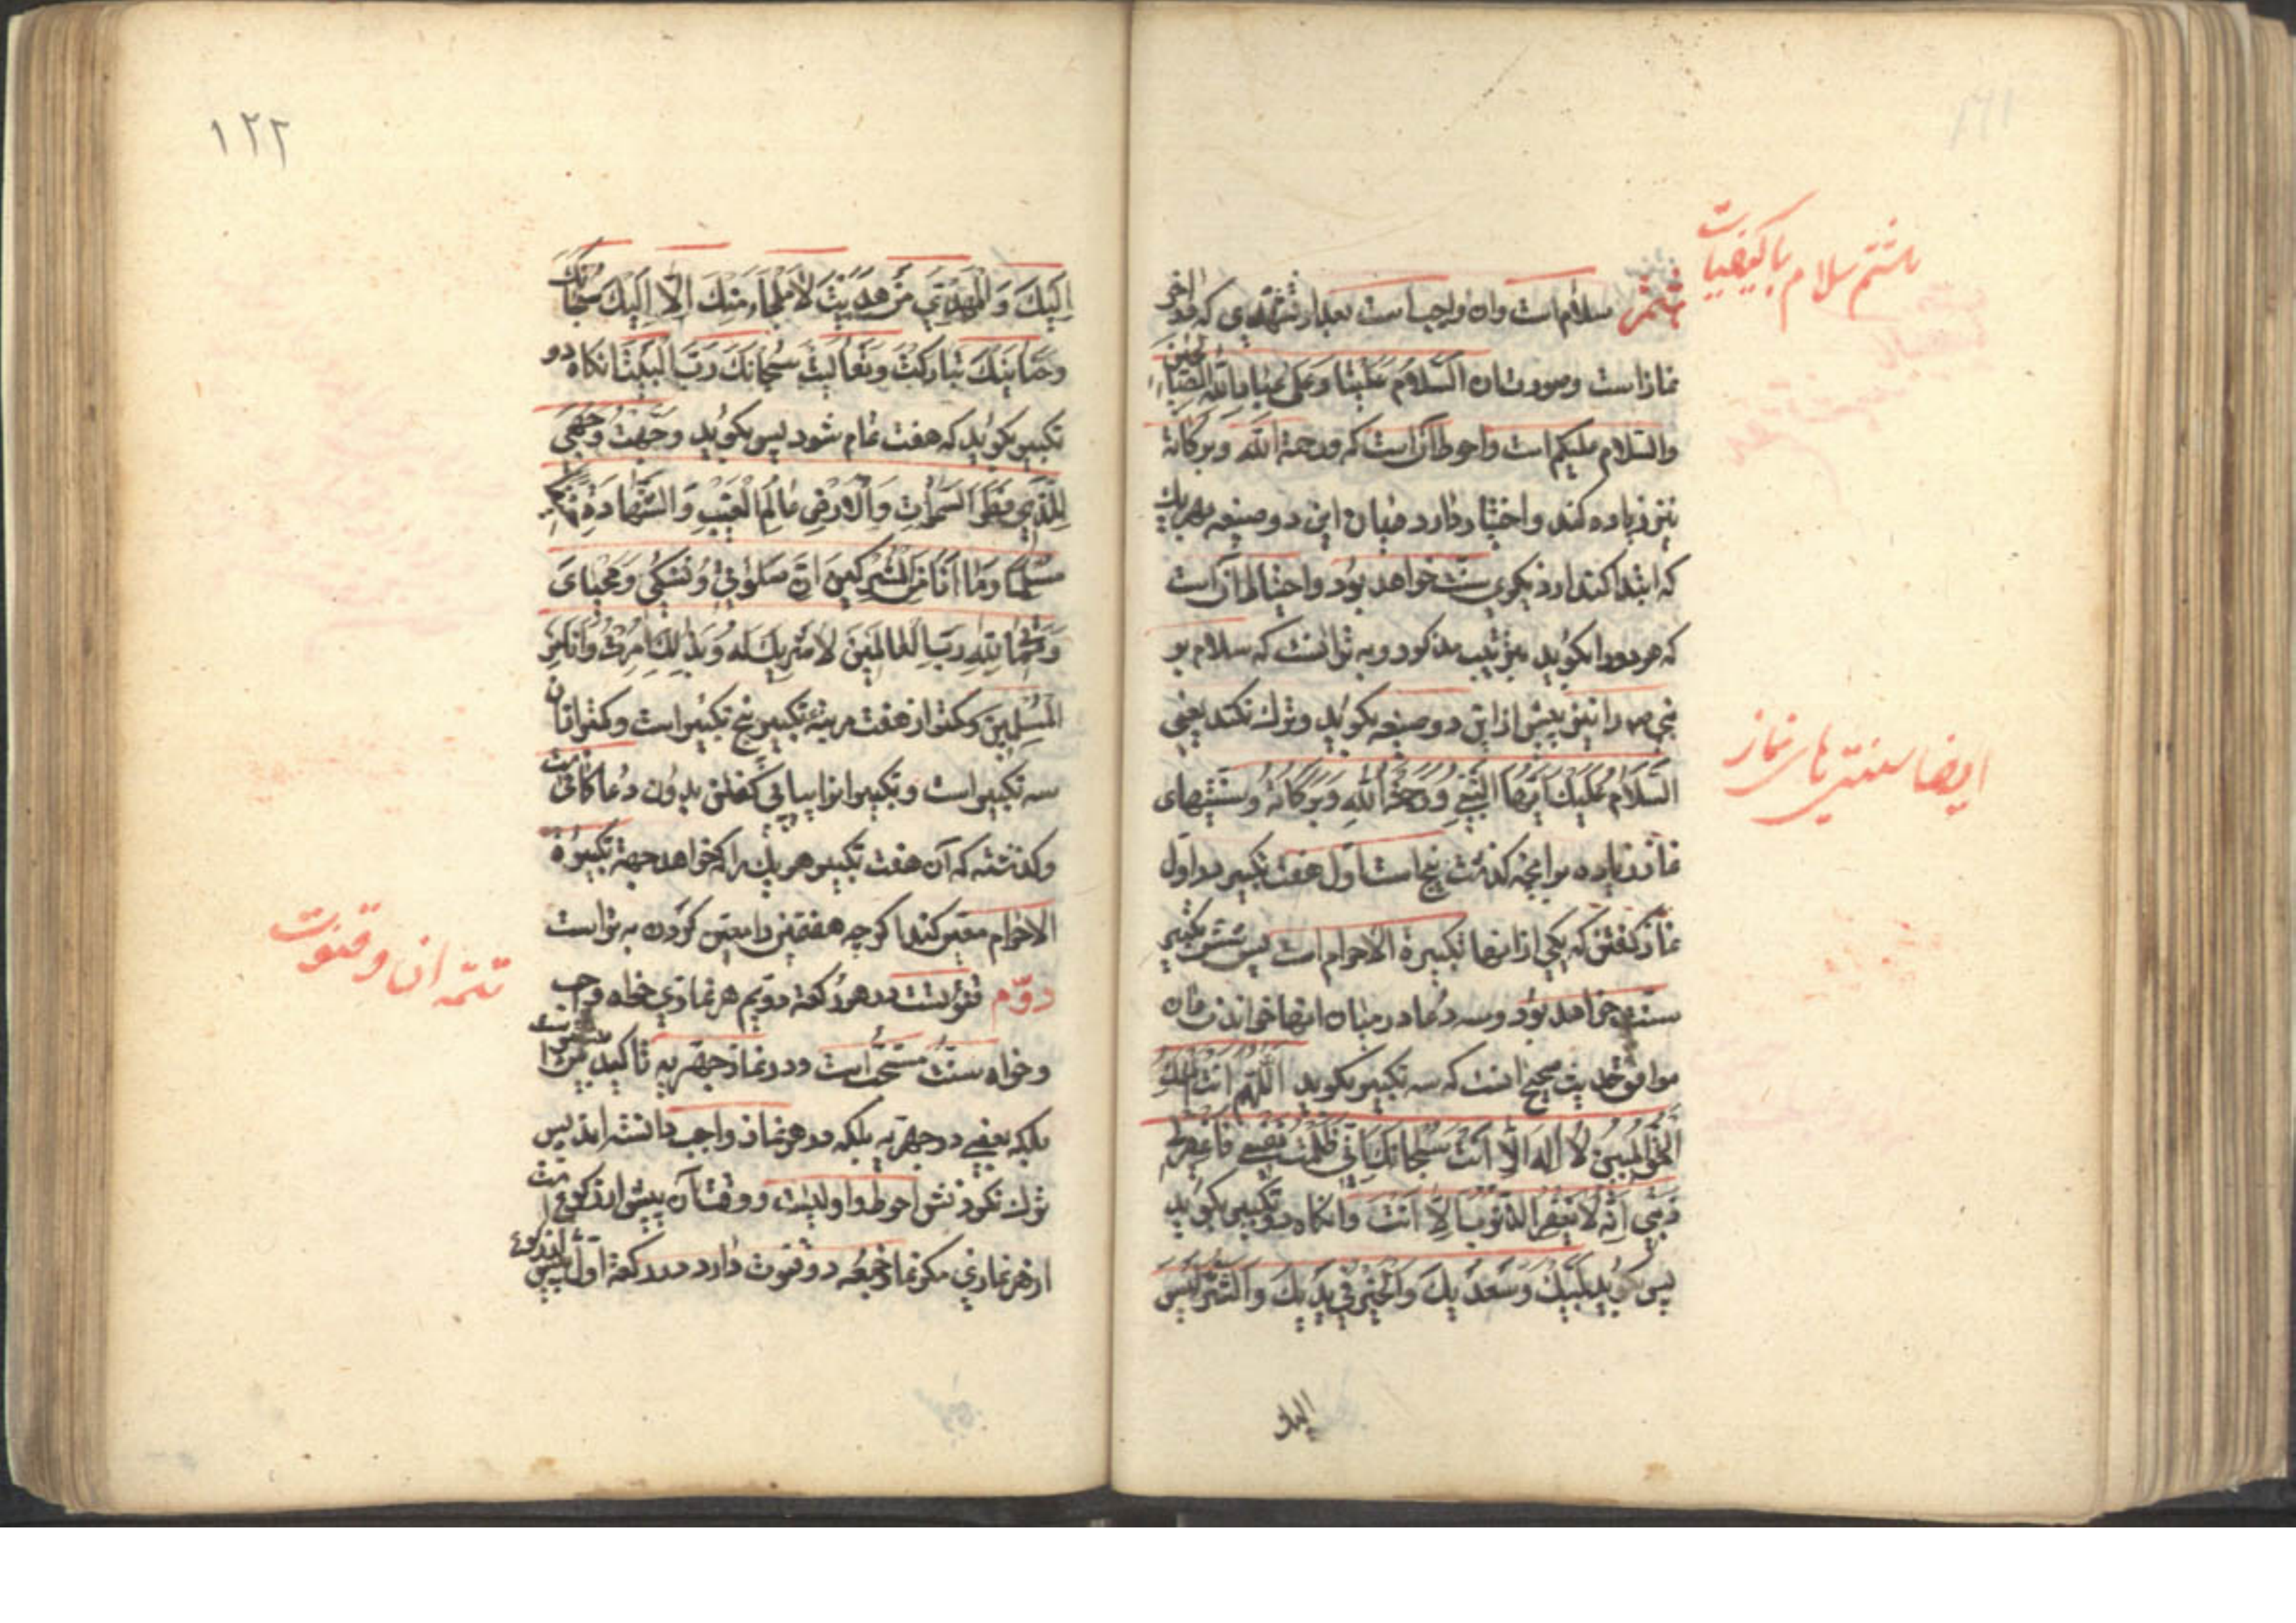 ۱۲۱
هشتم سلام با کیفیات
هشتم سلام است و آن واجب است بعد از تشهدی که در آخر
نماز است و صورت آن السَّلامُ عَلَیْنا وَعَلیٰ عِبادِ اللهِ الصّالِحین
والسّلام علیکم است واحوط آن است که ورحمة الله وبرکاته
نیز زیاده کند و اختیار دارد میان این دو صیغه بهر یك
که ابتدا کند و دیگری سنّت خواهد بود و احتیاط آن است
که هر دو را بگوید بترتیب مذکور و بهتر آنست که سلام بر
نبی را نیز پیش از این دو صیغه بگوید و ترك نکند یعنی
ایضا سنتی های نماز
السَّلامُ عَلَیْكَ اَیُّهَا النَّبِیُّ وَرَحْمَةُ اللهِ وَبَرَکاتُهُ وسنّتیهای
نماز زیاده بر آنچه گذشت پنج است اوّل هفت تکبیر در اوّل
نماز گفتن که یکی از آنها تکبیرة الاحرام است پس شش تکبیر
سنّت خواهد بود و سه دعا در میان آنها خواندن و آن
موافق حدیث صحیح آنست که سه تکبیر بگوید اَللّٰهُمَّ اَنْتَ الْمَلِكُ
الْحَقُّ الْمُبینُ لا اِلهَ اِلّا اَنْتَ سُبْحانَكَ اِنّی ظَلَمْتُ نَفْسی فَاغْفِرْلی
ذَنْبی اِنَّهُ لا یَغْفِرُ الذُّنُوبَ اِلّا اَنْتَ وآنگاه دو تکبیر بگوید
پس بگوید لَبَّیْكَ وَسَعْدَیْكَ وَالْخَیْرُ فی یَدَیْكَ وَالشَّرُّ لَیْسَ
الیك
۱۲۲
اِلَیْكَ وَالْمَهْدِیُّ مَنْ هَدَیْتَ لا مَلْجَاَ مِنْكَ اِلّا اِلَیْكَ سُبْحانَكَ
وَحَنانَیْكَ تَبارَکْتَ وَتَعالَیْتَ سُبْحانَكَ رَبَّ الْبَیْتِ آنگاه دو
تکبیر بگوید که هفت تمام شود پس بگوید وَجَّهْتُ وَجْهِیَ
لِلَّذی فَطَرَ السَّمٰواتِ وَالْاَرْضِ عالِمِ الْغَیْبِ وَالشَّهادَةِ حَنیفًا
مُسْلِمًا وَما اَنَا مِنَ الْمُشْرِکینَ اِنَّ صَلوٰتی وَنُسُکی وَمَحْیایَ
وَمَماتی لِلّهِ رَبِّ الْعالَمینَ لا شَریكَ لَهُ وَبِذٰلِكَ اُمِرْتُ وَاَنَا مِنَ
الْمُسْلِمینَ و کمتر از هفت مرتبه تکبیر پنج تکبیر است و کمتر از آن
سه تکبیر است و تکبیر را پیاپی گفتن بدون دعا کافیست
و گذشته که آن هفت تکبیر هر یك را که خواهد جهة تکبیرة
الاحرام معیّن کند اگرچه هفتمین را معیّن کردن بهتر است
تتمه ان و قنوت
دوّم قنوتست در هر رکعة دویم هر نمازی خواه واجب
و خواه سنّت مستحبّ است و در نماز جهریه تاکیدش بیشتر است
بلکه بعضی در جهریه بلکه در هر نماز واجب دانسته اند پس
ترك نکردنش احوط و اولیست و وقت آن پیش از رکوع است
از هر نمازی مگر نماز جمعه دو قنوت دارد در رکعة اوّل پیش از رکوع